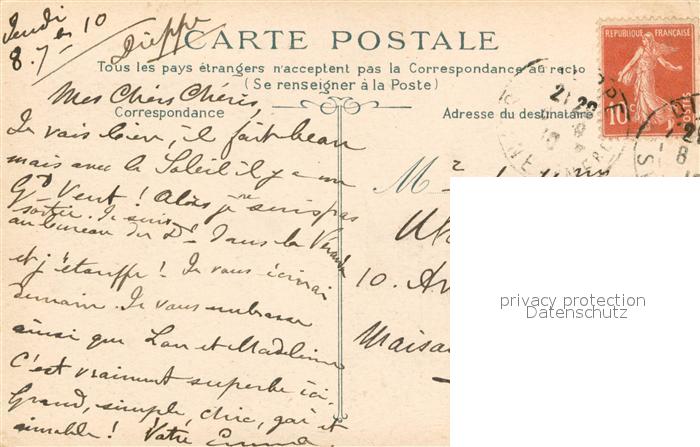 Jeudi
8. 7bre 10
Dieppe
CARTE POSTALE
Tous les pays étrangers n'acceptent pas la Correspondance au recto
(Se renseigner à la Poste)
Correspondance
Adresse du destinataire
RÉPUBLIQUE FRANÇAISE
10c
Mes Chéris Chéris,
Je vais bien, il fait beau
mais avec le Soleil il y a un
Gd Vent! Alors je ne suis pas
sortie. Je suis
au bureau du Dr dans la Veranda
et j'étouffe! Je vous écrirai
demain. Je vous embrasse
ainsi que Lou et Madeleine
C'est vraiment superbe ici.
Grand, simple, chic, gai et
aimable! Votre Emma.
10. Av
Maison
privacy protection
Datenschutz